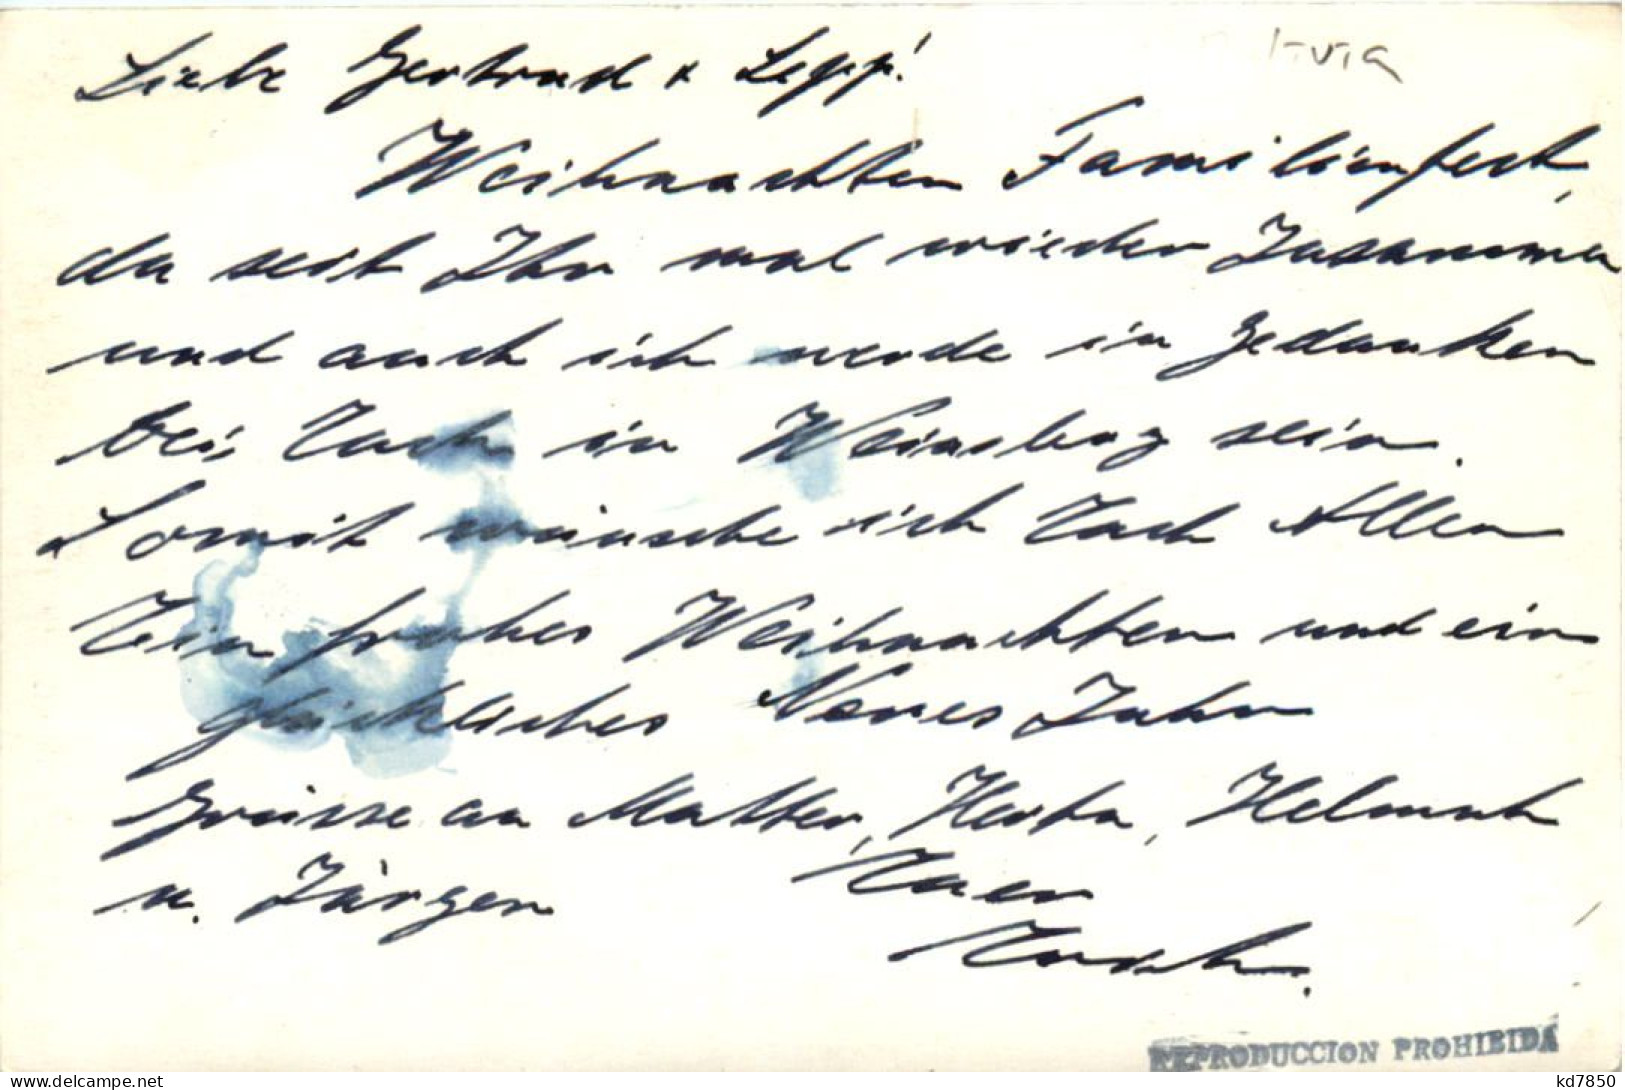 Liebe Gertrud + Sepp!
Weihnachten Familienfest,
da seit Ihr mal wieder Zusammen
und auch ich werde in Gedanken
bei Euch in Weinsberg sein.
Somit wünsche ich Euch Allen
Ein frohes Weihnachten und ein
glückliches Neues Jahr
Grüsse an Mutter, Herta, Helmut
u. Jürgen
Euer
REPRODUCCION PROHIBIDA
kd7850